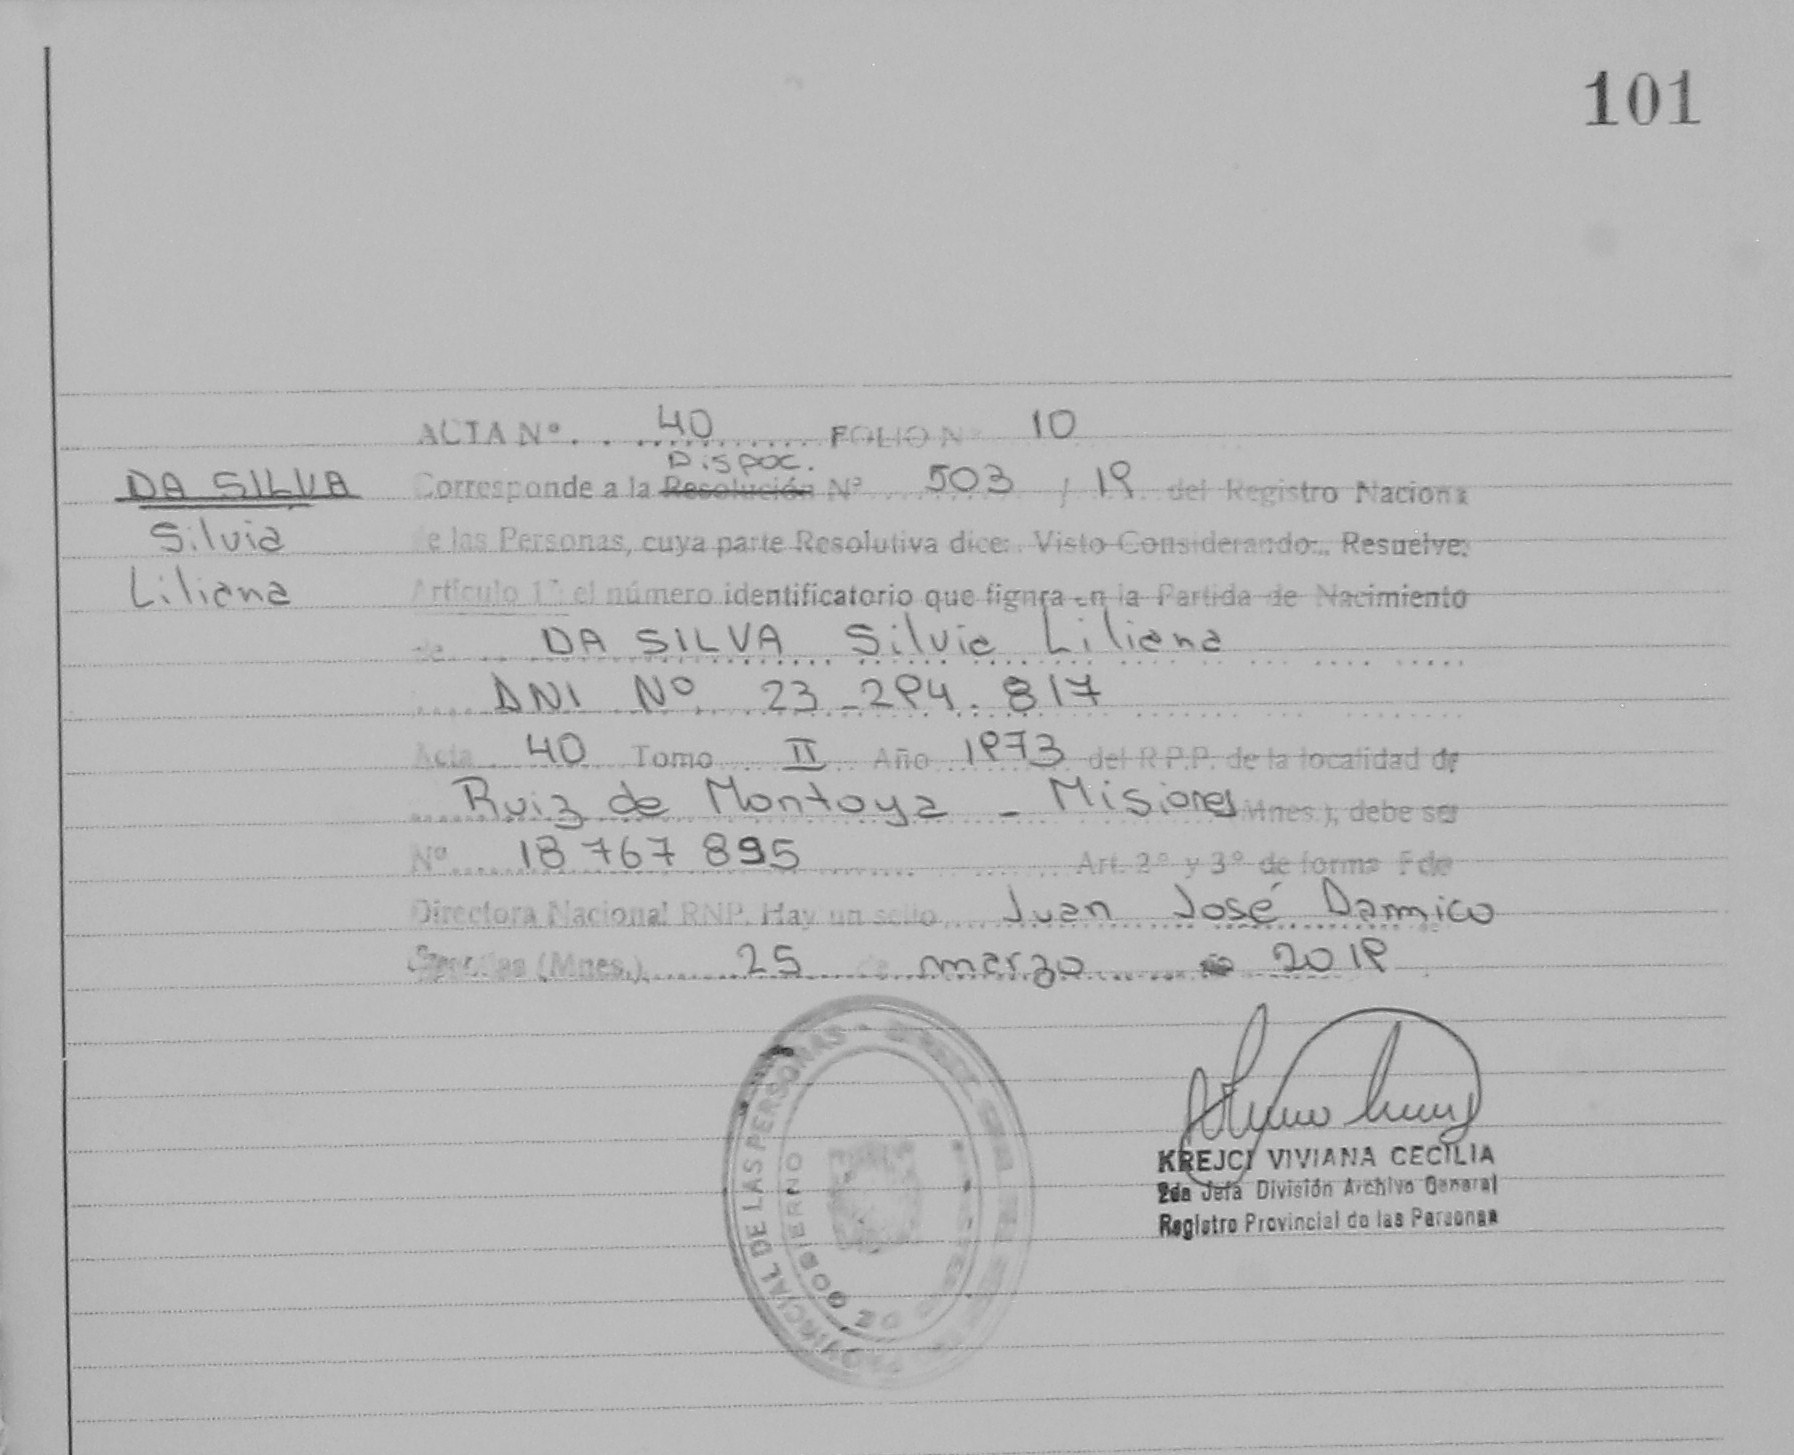 101
ACTA Nº. . ............ FOLIO Nº
40
10
Dispoc.
DA SILVA
Silvia
Liliana
Corresponde a la Resolución Nº 503 / 19 del Registro Naciona
de las Personas, cuya parte Resolutiva dice: Visto Considerando:.. Resuelve:
Artículo 1º el número identificatorio que figura en la Partida de Nacimiento
de DA SILVA Silvia Liliana
DNI Nº 23-294.817
Acta 40 Tomo II Año 1973 del R.P.P. de la localidad de
Ruiz de Montoya - Misiones Mnes.), debe ser
Nº 18 767 895 Art. 2º y 3º de forma Fdo
Directora Nacional RNP. Hay un sello Juan José Damico
(Mnes.) 25 de marzo 2019
KREJCI VIVIANA CECILIA
2da Jefa División Archivo General
Registro Provincial de las Personas
PROVINCIAL DE LAS PERSONAS
DE GOBIERNO